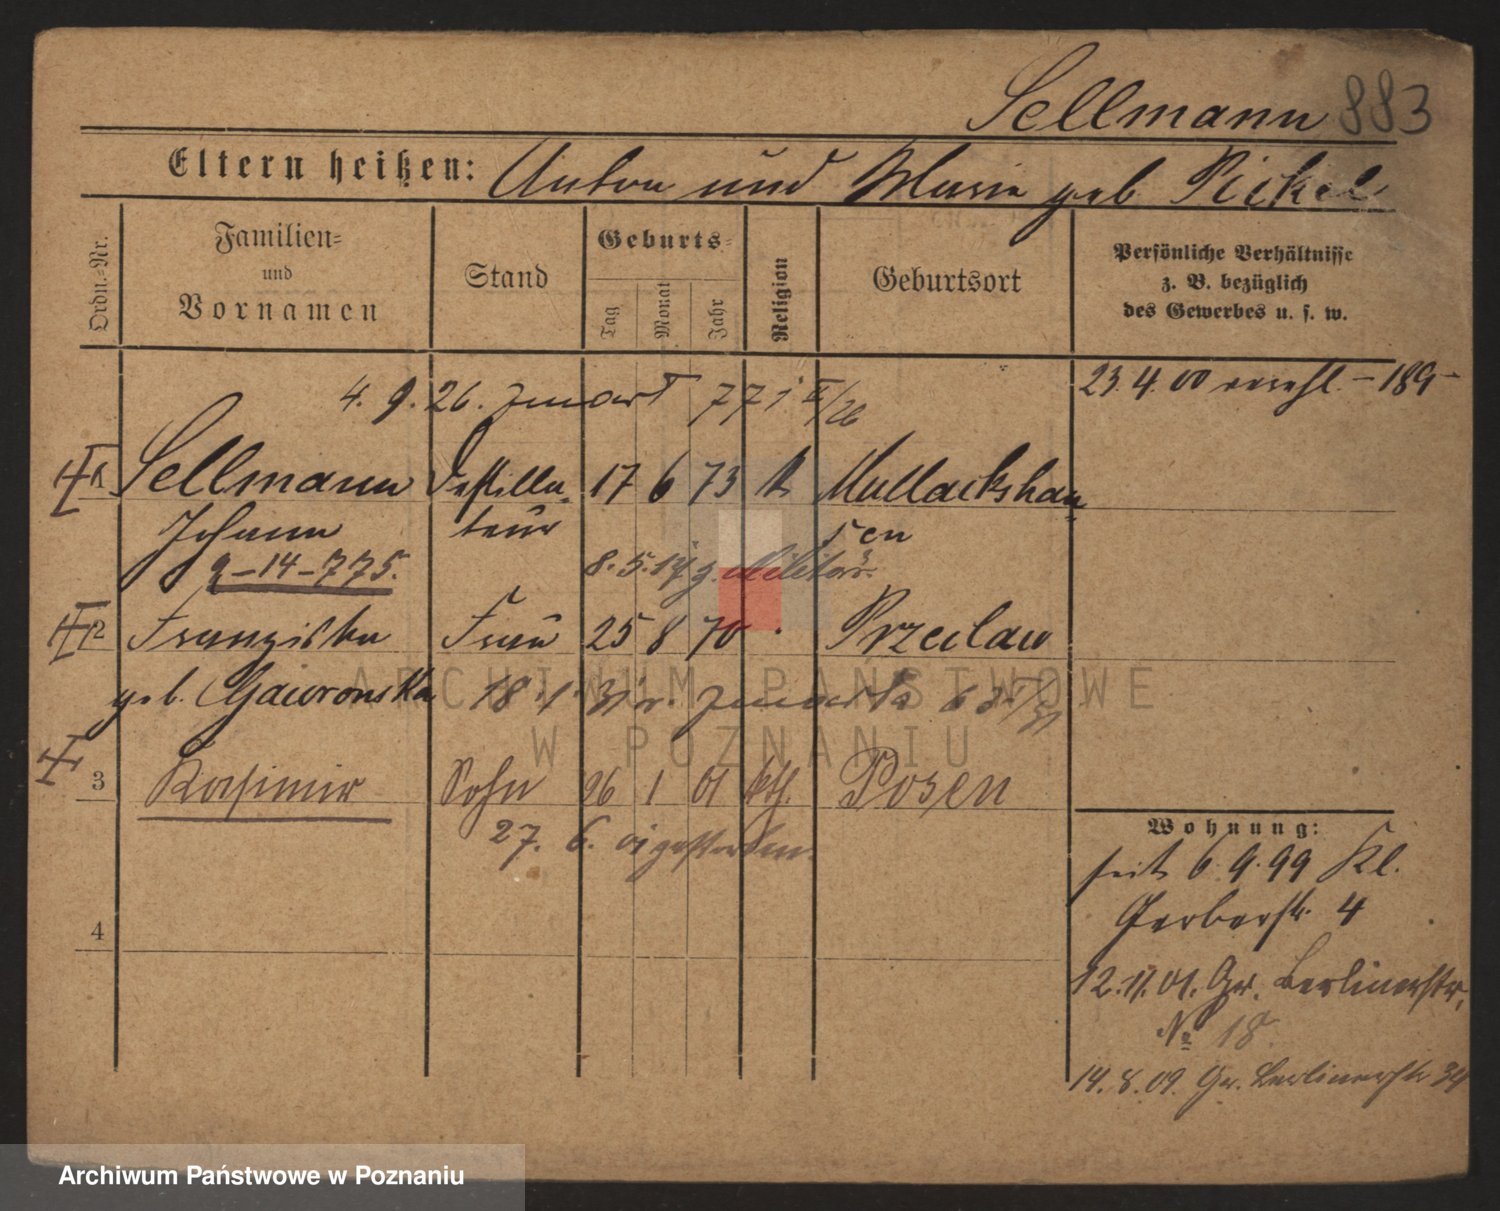 Sellmann 883
Eltern heißen: Anton und Marie geb Pickel
Ordn.-Nr.
Familien-
und
Vornamen
Stand
Geburts-
Tag
Monat
Jahr
Religion
Geburtsort
Persönliche Verhältnisse
z. B. bezüglich
des Gewerbes u. s. w.
23.4.00 189
4. 9. 26. zmarł 771
1 Sellmann Destilla- 17 6 73 k Mullackshau-
Johann teur sen
9-14-775. 8.5.17 z. Militär.
2 Franziska Frau 25 8 70 " Przeclaw
geb. Gawronska 18.1.31 r. zmarła
3 Kasimir Sohn 26 1 01 kth. Posen
27. 6. 01 gestorben.
4
Wohnung:
seit 6.9.99 Kl.
Gerberstr. 4
12.11.01. Gr. Berlinerstr.
No 18.
14.8.09. Gr. Berlinerstr 34
ARCHIWUM PAŃSTWOWE
W POZNANIU
Archiwum Państwowe w Poznaniu